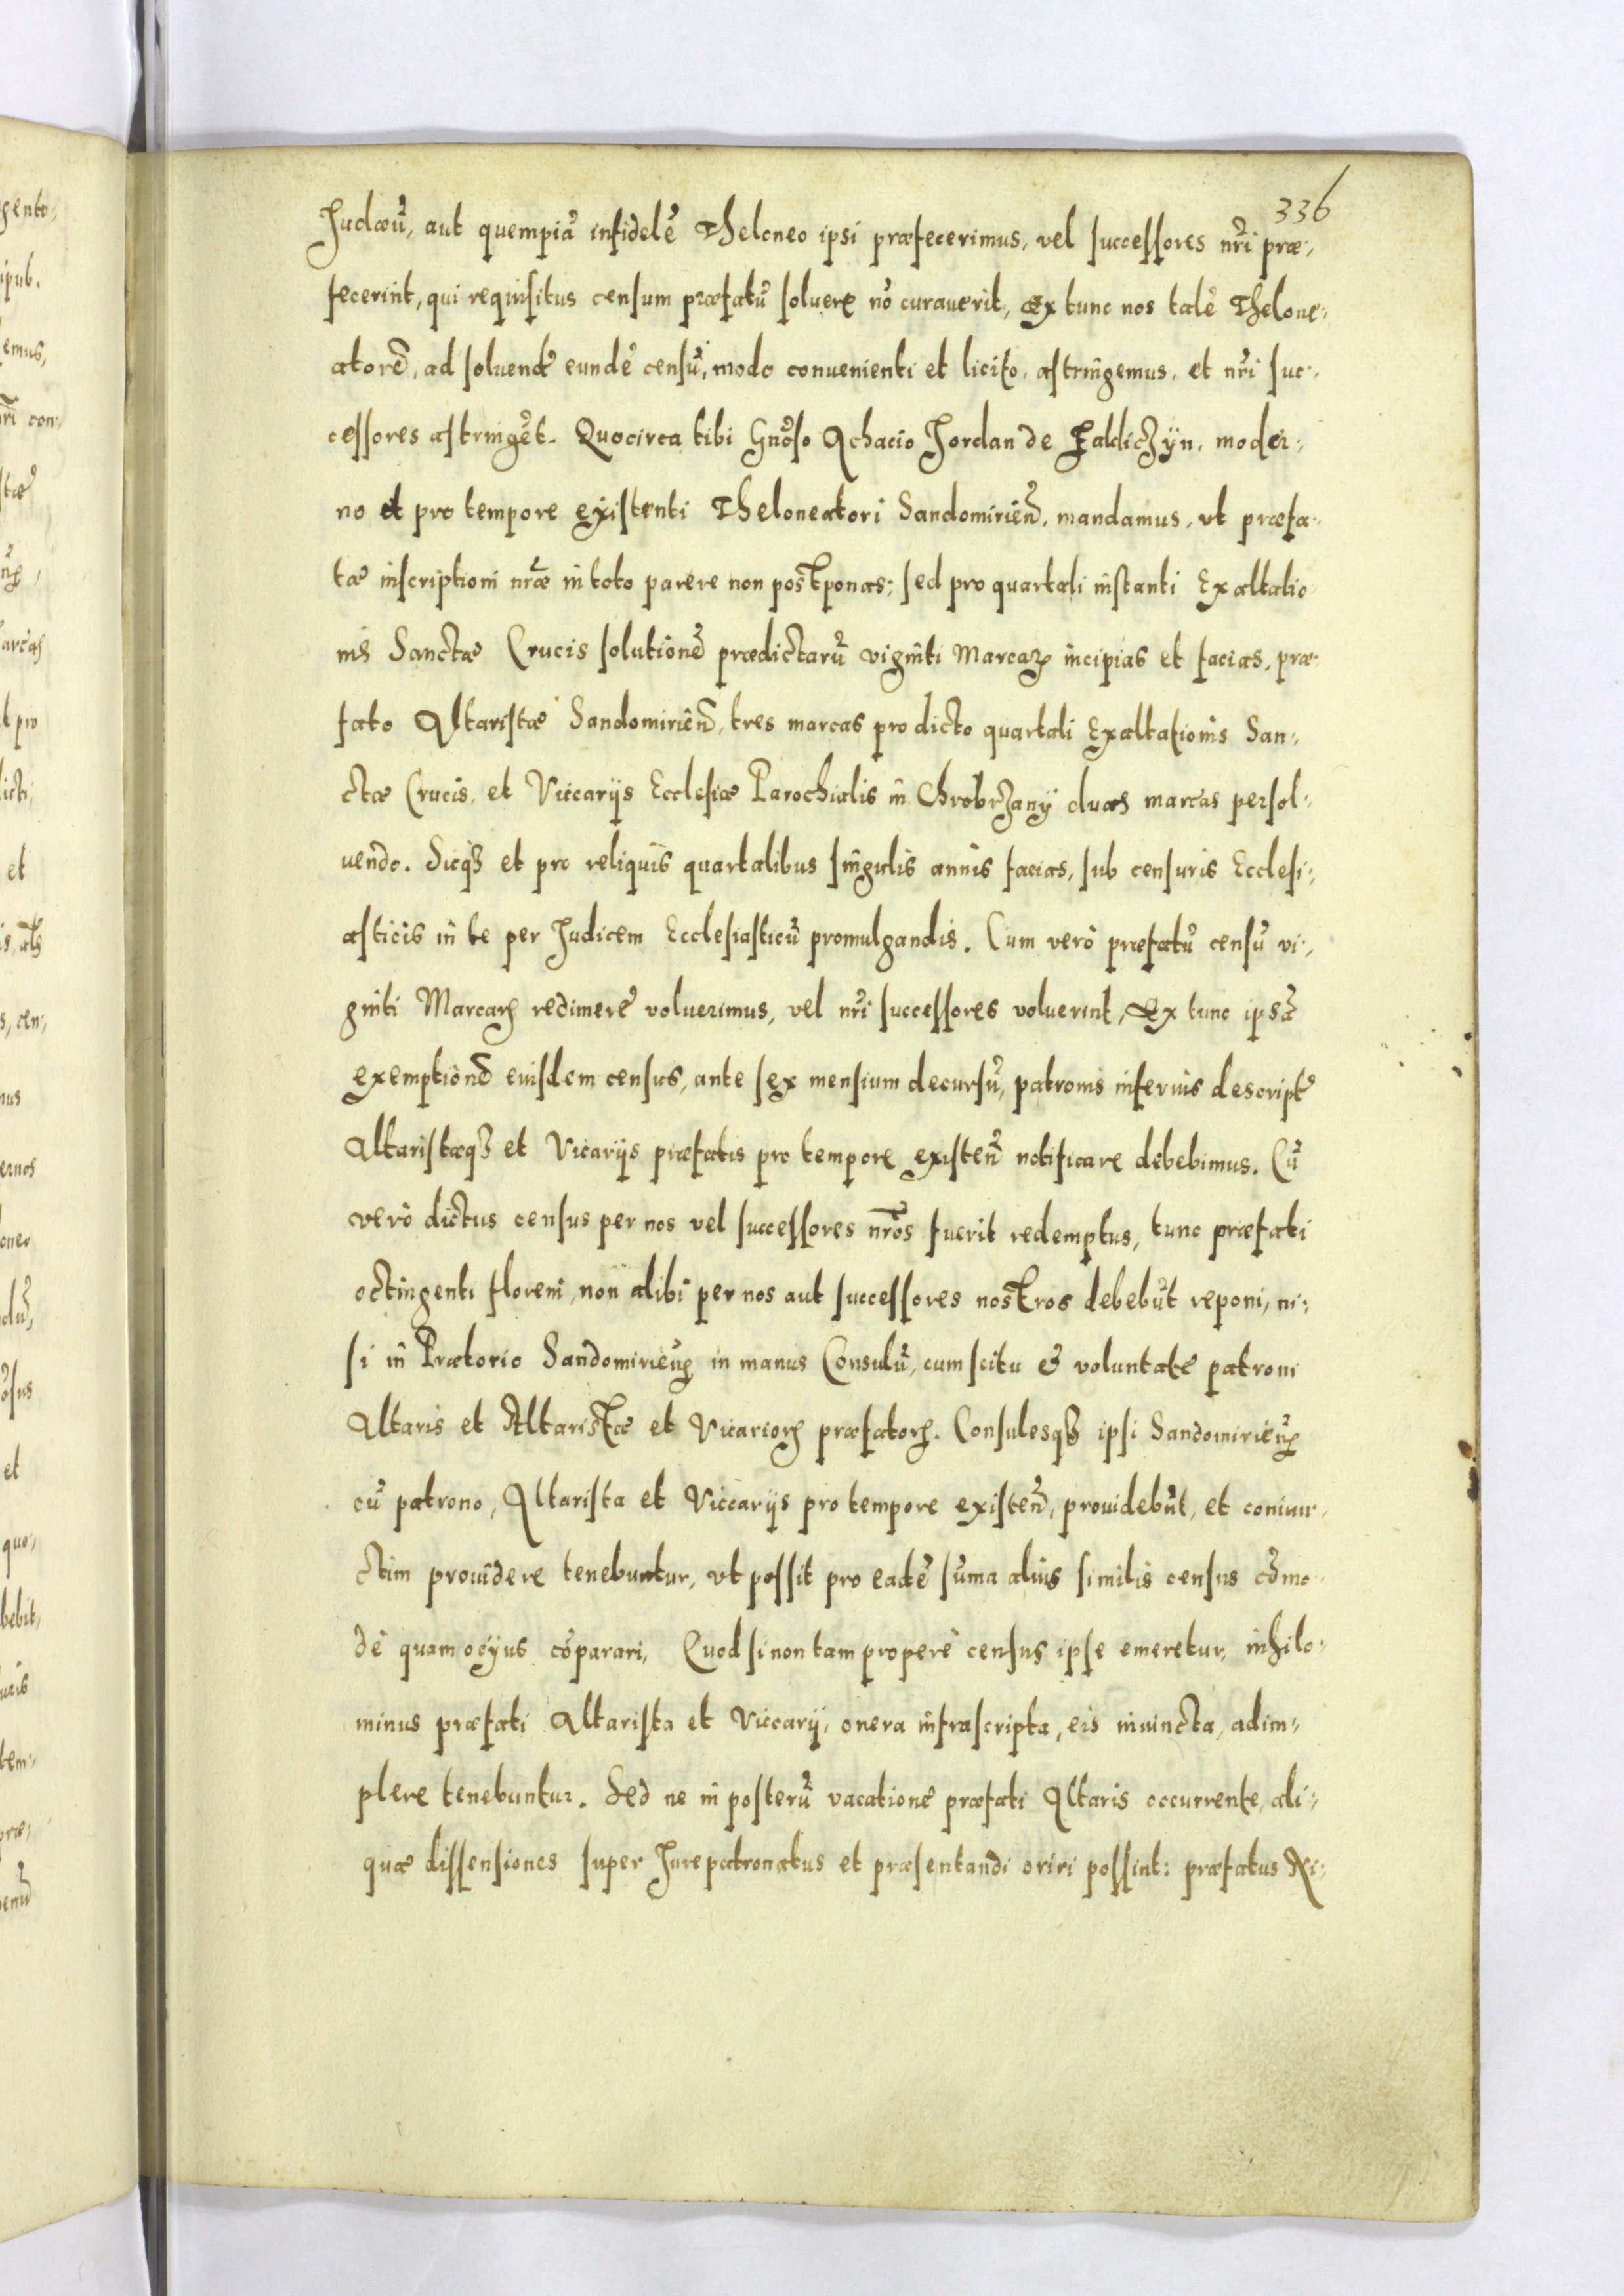 336
Judæũ, aut quempiã infidelẽ Theloneo ipsi præfecerimus, vel successores nr̃i præ,
fecerint, qui requisitus censum præfatũ soluere nõ curauerit, ex tunc nos talẽ Thelone,
atorẽ, ad soluendũ eundẽ censũ, modo conuenienti et licito, astringemus, et nr̃i suc,
cessores astringẽt. Quocirca tibi Gnõso Achacio Jordan de Zaldicziÿn, moder,
no et pro tempore existenti Theloneatori Sandomirien̄, mandamus, vt præfa,
tæ inscriptioni nr̃æ in toto parere non postponas; sed pro quartali instanti Exaltatio
nis Sanctæ Crucis solutionẽ prædictarũ viginti Marcaꝝ incipias et facias, præ,
fato Altaristæ Sandomirien̄, tres marcas pro dicto quartali Exaltationis San,
ctæ Crucis, et Viccarijs Ecclesiæ Parochialis in Chrobrzanÿ duas marcas persol,
uendo. Sicqꝫ et pro reliquis quartalibus singulis annis facias, sub censuris Ecclesi,
asticis in te per Judicem Ecclesiasticũ promulgandis. Cum verò præfatũ censũ vi,
ginti Marcaꝝ redimere voluerimus, vel nr̃i successores voluerint, Ex tunc ipsã
exemptionẽ eiusdem census, ante sex mensium decursũ, patronis inferius descript̃
Altaristæqꝫ et Vicarijs præfatis pro tempore existeñ notificare debebimus. Cũ
verò dictus census per nos vel successores nr̃os fuerit redemptus, tunc præfati
octingenti floreni, non alibi per nos aut successores nostros debebũt reponi, ni,
si in Prætorio Sandomirieñ in manus Consulũ, cum scitu & voluntate patroni
Altaris et Altaristæ et Vicarioꝝ præfatoꝝ. Consulesqꝫ ipsi Sandomirieñ
cũ patrono, Altarista et Viccarijs pro tempore existeñ, prouidebũt, et coniun,
ctim prouidere tenebuntur, vt possit pro eadẽ sũma alius similis census cõmo
dè quam ocÿus cõparari, Quod si non tam properè census ipse emeretur, nihilo,
minus præfati Altarista et Viccarij, onera infrascripta, eis iniuncta, adim,
plere tenebuntur. Sed ne in posterũ vacatione præfati Altaris occurrente, ali,
quæ dissensiones super Jurepatronatus et præsentandi oriri possint: præfatus Ni,